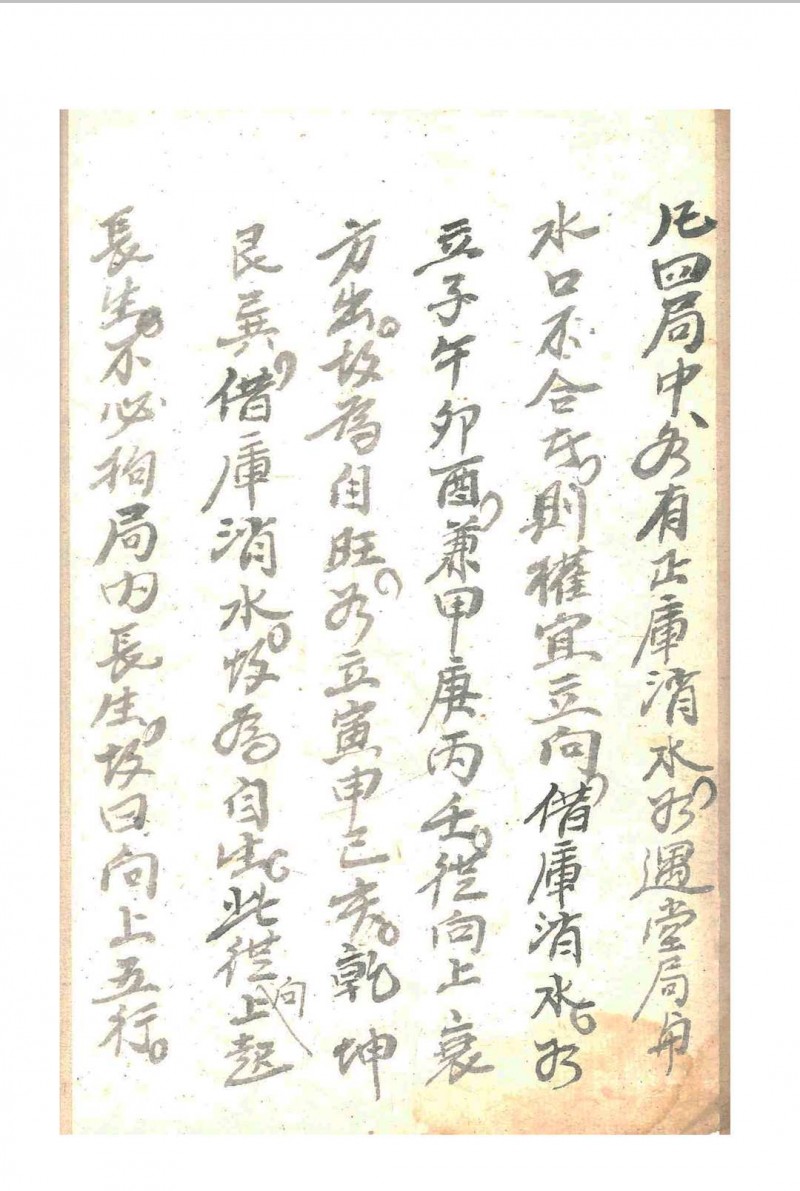 凡四局中、各有正庫消水。若遇堂局與
水口不合者、則權宜立向、借庫消水。若
立子午卯酉、兼甲庚丙壬。從向上衰
方出。故為自旺。若立寅申巳亥。乾坤
艮巽、借庫消水。故為自生。此從向上起
長生。不必拘局內長生、故曰向上五行。